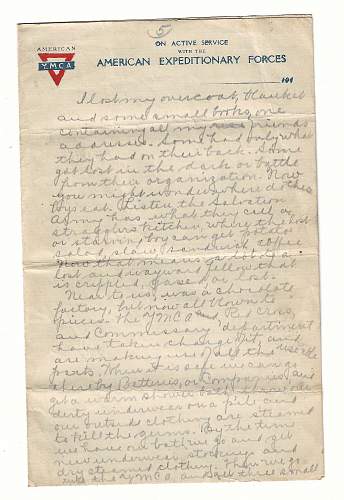 5
AMERICAN
Y.M.C.A
ON ACTIVE SERVICE
WITH THE
AMERICAN EXPEDITIONARY FORCES
191
I lost my overcoat, blanket
and some small books, one
containing all my friends
addresses. Some had only what
they had on their back. Some
got lost in the dark or battle
from their organization. Now
you might wonder where do these
boys eat. Listen the Salvation
Army has what they call a
stragglers kitchen where the lost
or starving boy can get potato
salad, slaw, sandwich, coffee
now that means a lot to a
lost and wayward fellow that
is crippled, gased, or lost.
Near to us, was a chocolate
factory, but now all blown to
pieces. The YMCA and Red Cross,
and Commissary department
have taken charge of it, and
are making use of all the
parts. When it is safe we can go
there by Batteries, or Companies, and
get a warm shower bath, throw our
dirty underwear on a pile and
our outside clothing are steamed
to kill the germs. By the time
we have our bath we go and get
new underwear, stockings and
dry steamed clothing. Then we go
into the YMCA and get three small